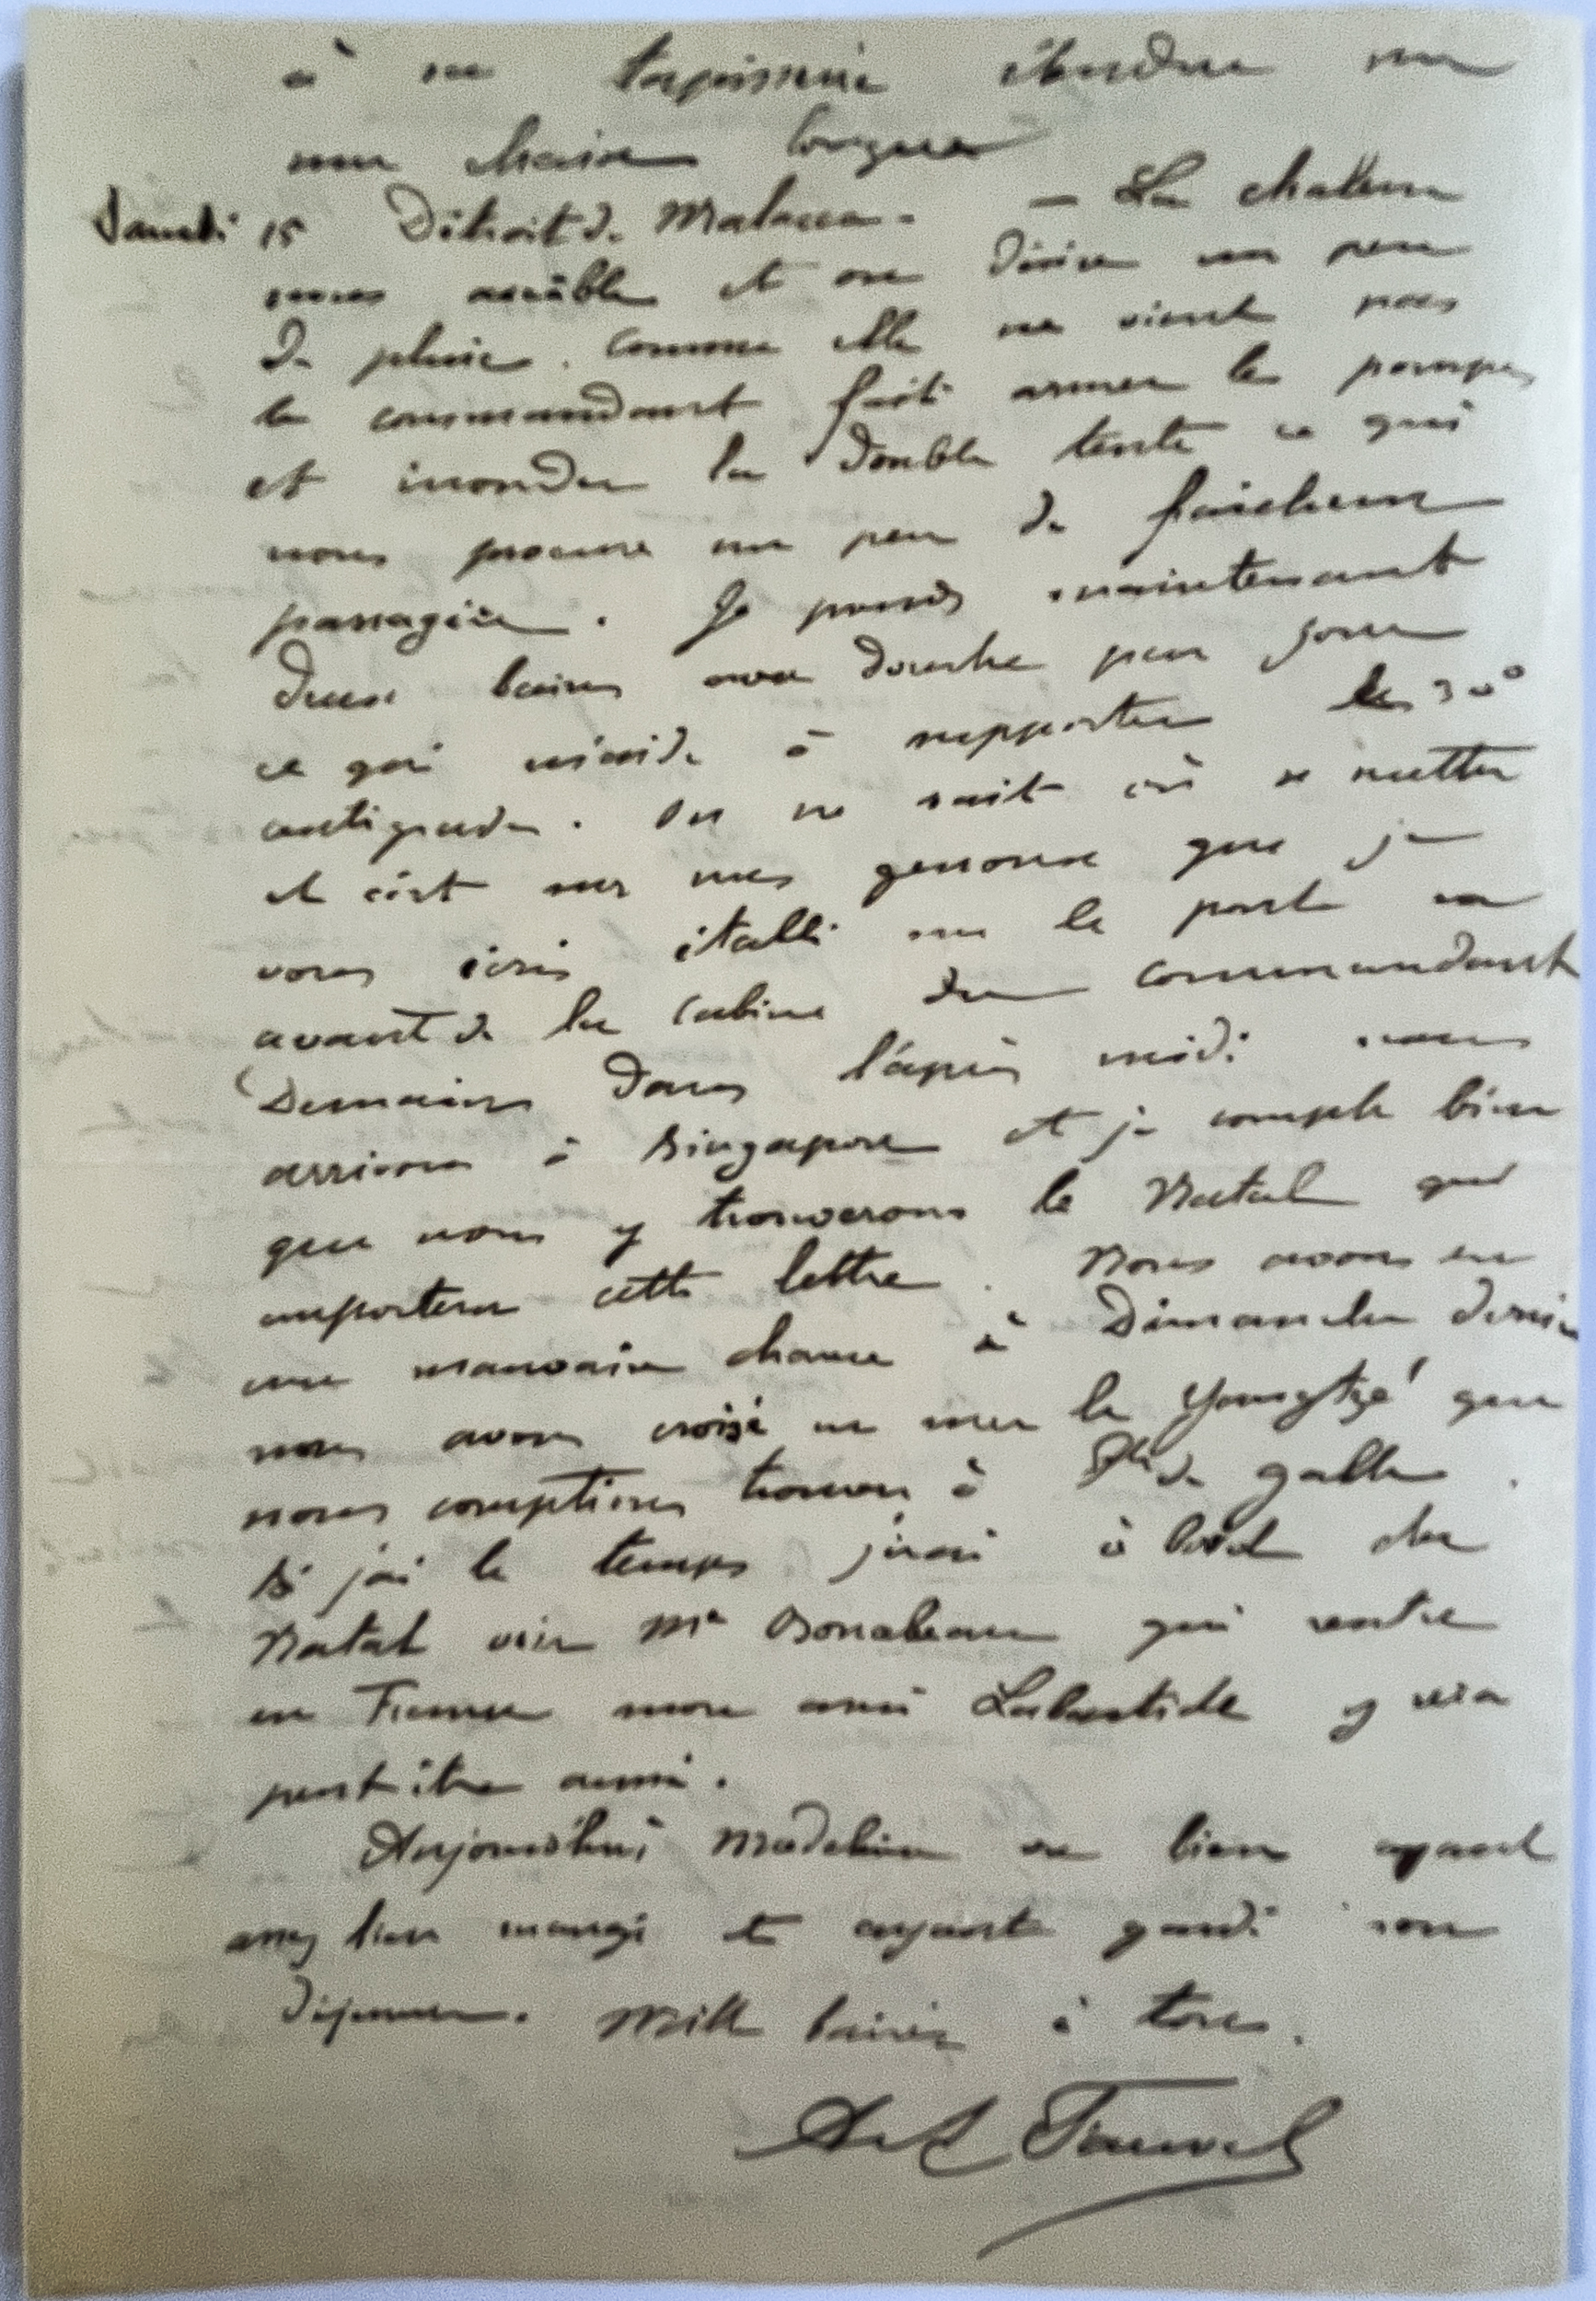 à sa tapisserie étendue sur
une chaise longue
Samedi 15 Détroit de Malacca. – La chaleur
nous accable et on désire un peu
de pluie. Comme elle ne vient pas
le commandant fait armer les pompes
et inonder la double tente ce qui
nous procure un peu de fraicheur
passagère. Je prends maintenant
deux bains avec douche par jour
ce qui m'aide à supporter les 30°
centigrades. On ne sait où se mettre
et c'est sur mes genoux que je
vous écris établi sur le pont en
avant de la cabine du commandant
Demain dans l'après midi nous
arrivons à Singapore et je compte bien
que nous y trouverons le Natal qui
emportera cette lettre. Nous avons eu
une mauvaise chance à Dimanche dernier
nous avons croisé en mer le Yangtzé que
nous comptions trouver à Pte de Galle.
Si j'ai le temps j'irai à bord du
Natal voir Mr Bonabeau qui rentre
en France mon ami Labastide y sera
peut être aussi.
Aujourd'hui Madeleine va bien ayant
assez bien mangé et ayant gardé son
déjeuner. Mille baisers à tous.
Fauvel